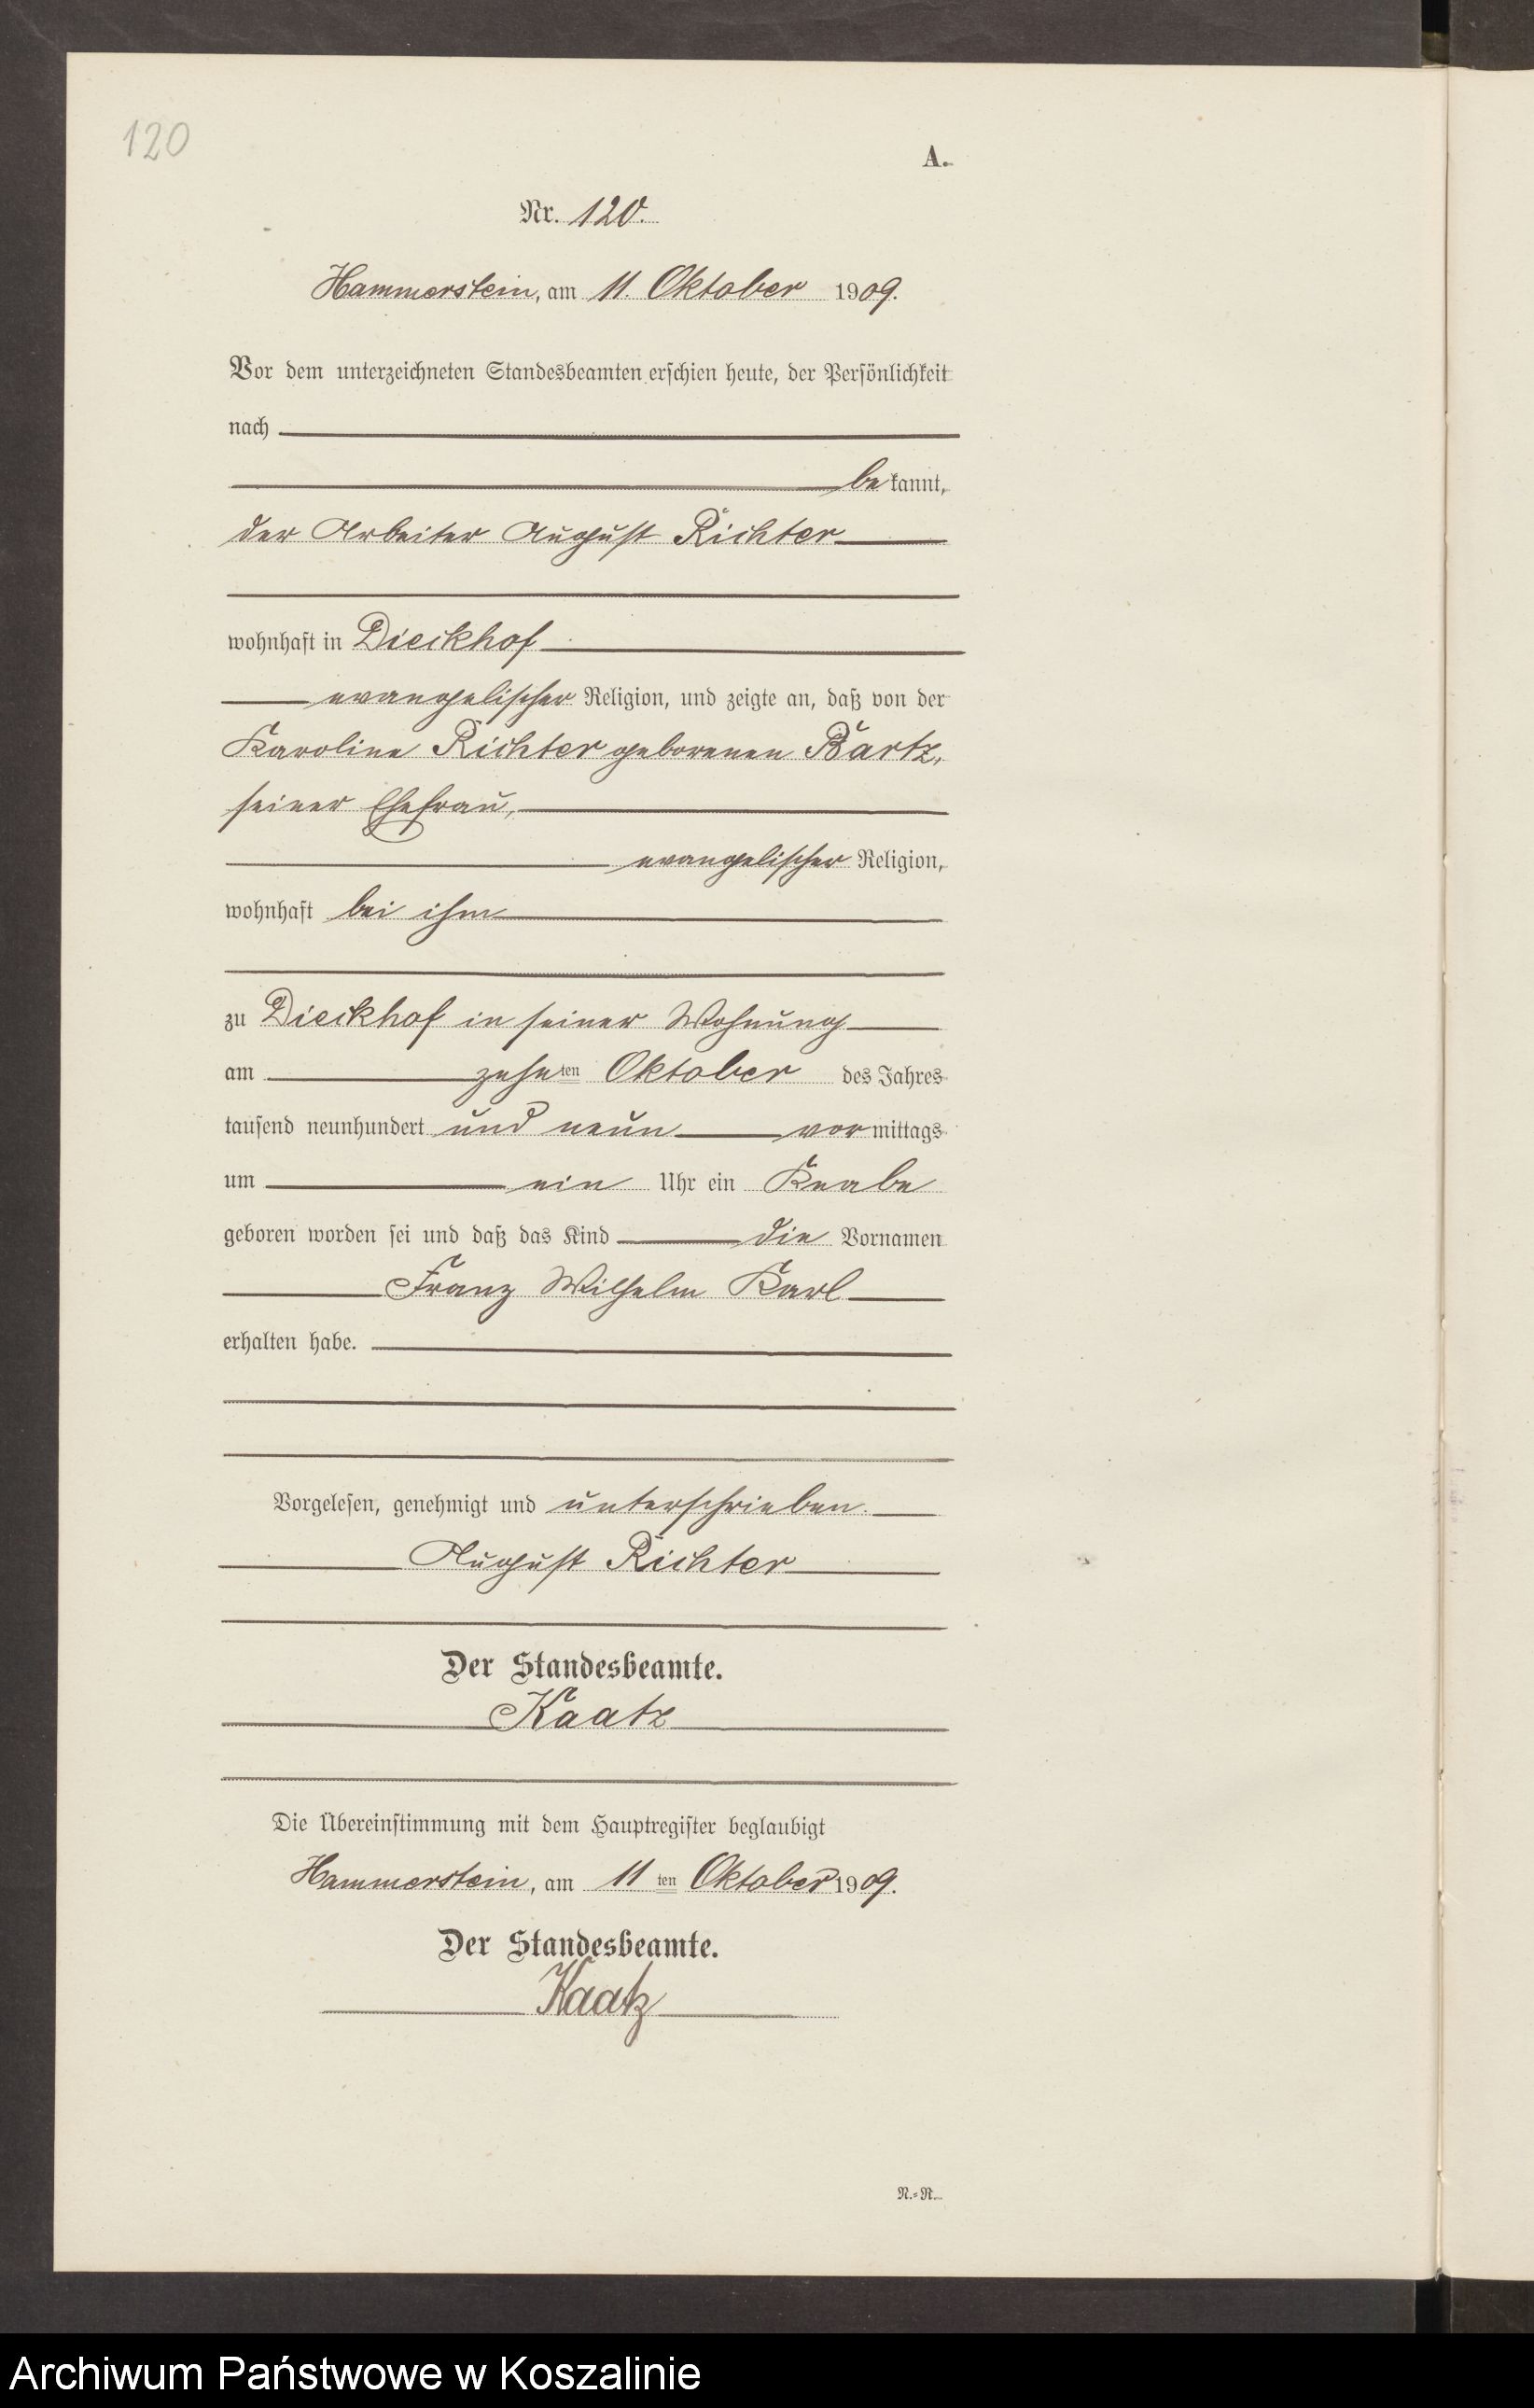 120
A.
Nr. 120.
Hammerstein, am 11. Oktober 1909.
Vor dem unterzeichneten Standesbeamten erschien heute, der Persönlichkeit
nach
bekannt,
der Arbeiter August Richter
wohnhaft in Dieckhof
evangelischer Religion, und zeigte an, daß von der
Karoline Richter geborenen Bartz,
seiner Ehefrau,
evangelischer Religion,
wohnhaft bei ihm
zu Dieckhof in seiner Wohnung
am zehnten Oktober des Jahres
tausend neunhundert und neun vormittags
um ein Uhr ein Knabe
geboren worden sei und daß das Kind die Vornamen
Franz Wilhelm Karl
erhalten habe.
Vorgelesen, genehmigt und unterschrieben.
August Richter
Der Standesbeamte.
Kaatz
Die Übereinstimmung mit dem Hauptregister beglaubigt
Hammerstein, am 11ten Oktober 1909.
Der Standesbeamte.
Kaatz
N.-R.
Archiwum Państwowe w Koszalinie